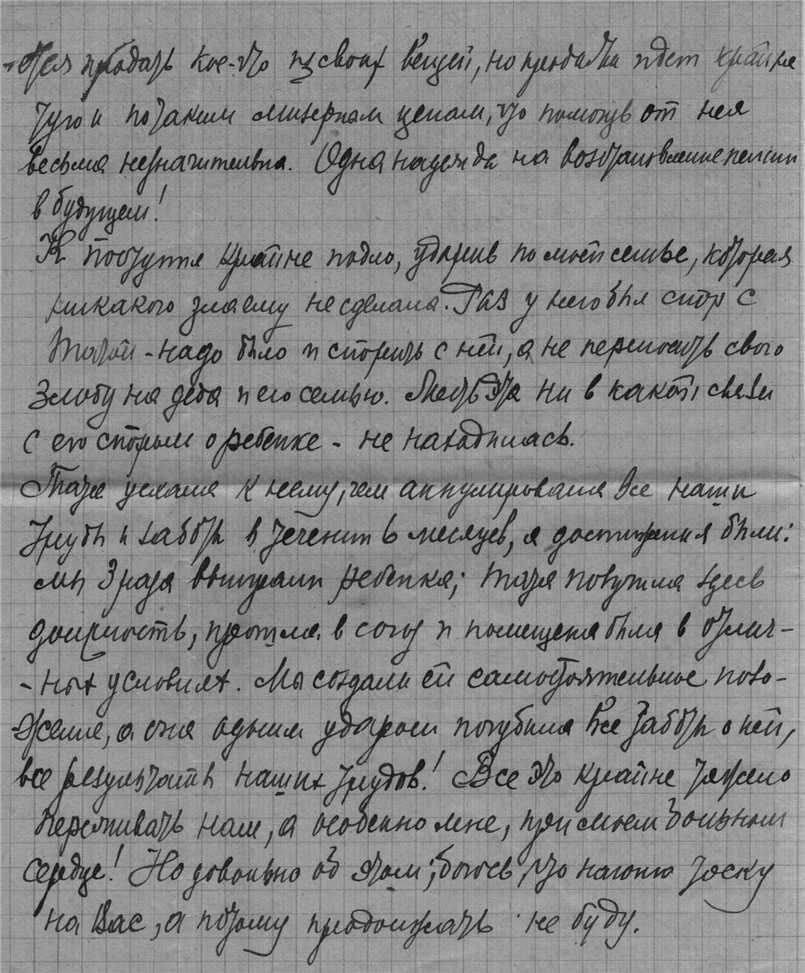 -тся продать кое-что из своих вещей, но продажа идет крайне
туго и по таким мизерным ценам, что помощь от нея
весьма незначительна. Одна надежда на возстановление пенсии
в будущем!
К поступил крайне подло, ударив по моей семье, которая
никакого зла ему не сделала. Раз у него был спор с
Татой - надо было и спорить с ней, а не переносить свою
злобу на деда и его семью. Месть эта ни в какой связи
с его спорым о ребенке - не находилась.
Тата уехала к нему, чем аннулировала все наши
труды и заботы в течении 6 месяцев, а достижения были:
мы 3 раза выиграли ребенка; Тата получила здесь
должность, прошла в союз и помещена была в отлич-
-ных условиях. Мы создали ей самостоятельное поло-
-жение, а она одним ударом погубила все заботы о ней,
все результаты наших трудов! Все это крайне тяжело
переживать нам, а особенно мне, при моем больном
сердце! Но довольно об этом; боюсь, что нагоню тоску
на Вас, а потому продолжать не буду.